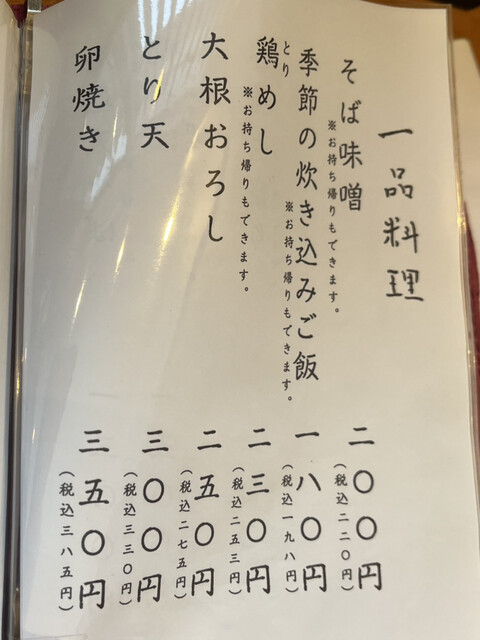 一品料理
そば味噌 二〇〇円
※お持ち帰りもできます。 (税込二二〇円)
季節の炊き込みご飯 一八〇円
※お持ち帰りもできます。 (税込一九八円)
とり
鶏めし 二三〇円
※お持ち帰りもできます。 (税込二五三円)
大根おろし 二五〇円
(税込二七五円)
とり天 三〇〇円
(税込三三〇円)
卵焼き 三五〇円
(税込三八五円)